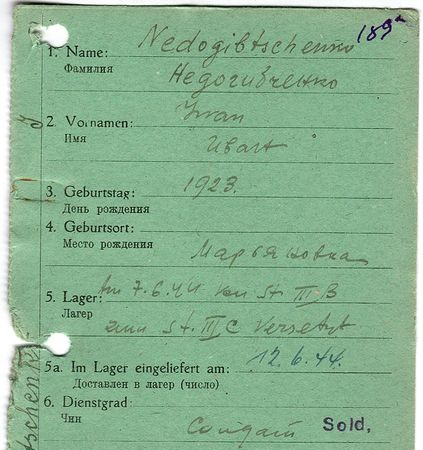 189a
1. Name: Nedogibtschenko
Фамилия Недогибченко
2. Vornamen: Iwan
Имя Иван
3. Geburtstag: 1923.
День рождения
4. Geburtsort:
Место рождения Марьяновка
5. Lager: Am 7.6.44 von St III-B
Лагер zum St. III C Versetzt
5a. Im Lager eingeliefert am: 12.6.44.
Доставлен в лагер (число)
6. Dienstgrad:
Чин Солдат Sold.